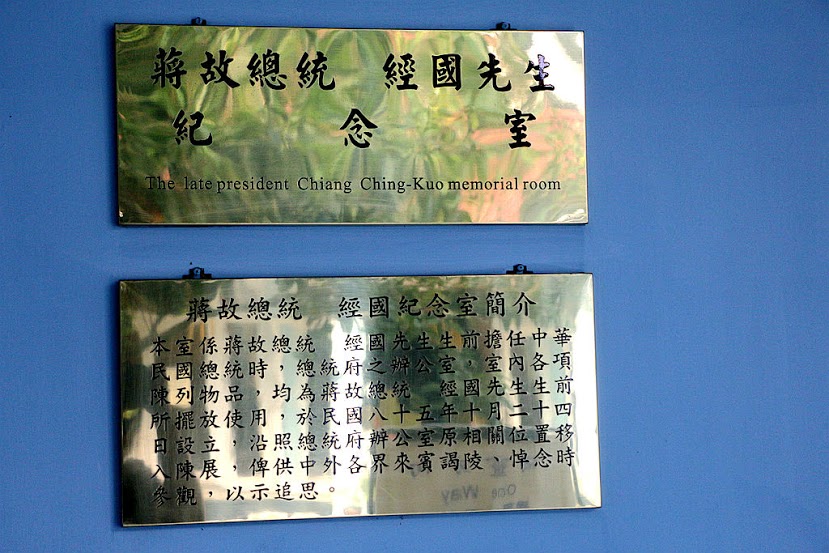 蔣故總統　經國先生
紀念室
The late president Chiang Ching-Kuo memorial room
蔣故總統　經國紀念室簡介
本室係蔣故總統　經國先生生前擔任中華
民國總統時，總統府之辦公室，室內各項
陳列物品，均為蔣故總統　經國先生生前
所擺放使用，於民國八十五年十月二十四
日設立，沿照總統府辦公室原相關位置移
入陳展，俾供中外各界來賓謁陵、悼念時
參觀，以示追思。
One Way